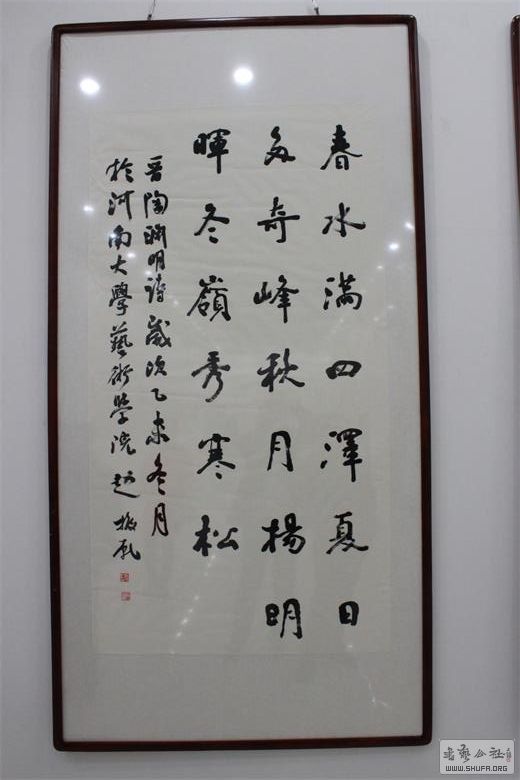 春水满四澤夏日
多奇峰秋月楊明
暉冬嶺秀寒松
晋陶渊明诗歲次乙未冬月
於河南大學藝術學院趙振乾
書藝公社
WWW.SHUFA.ORG